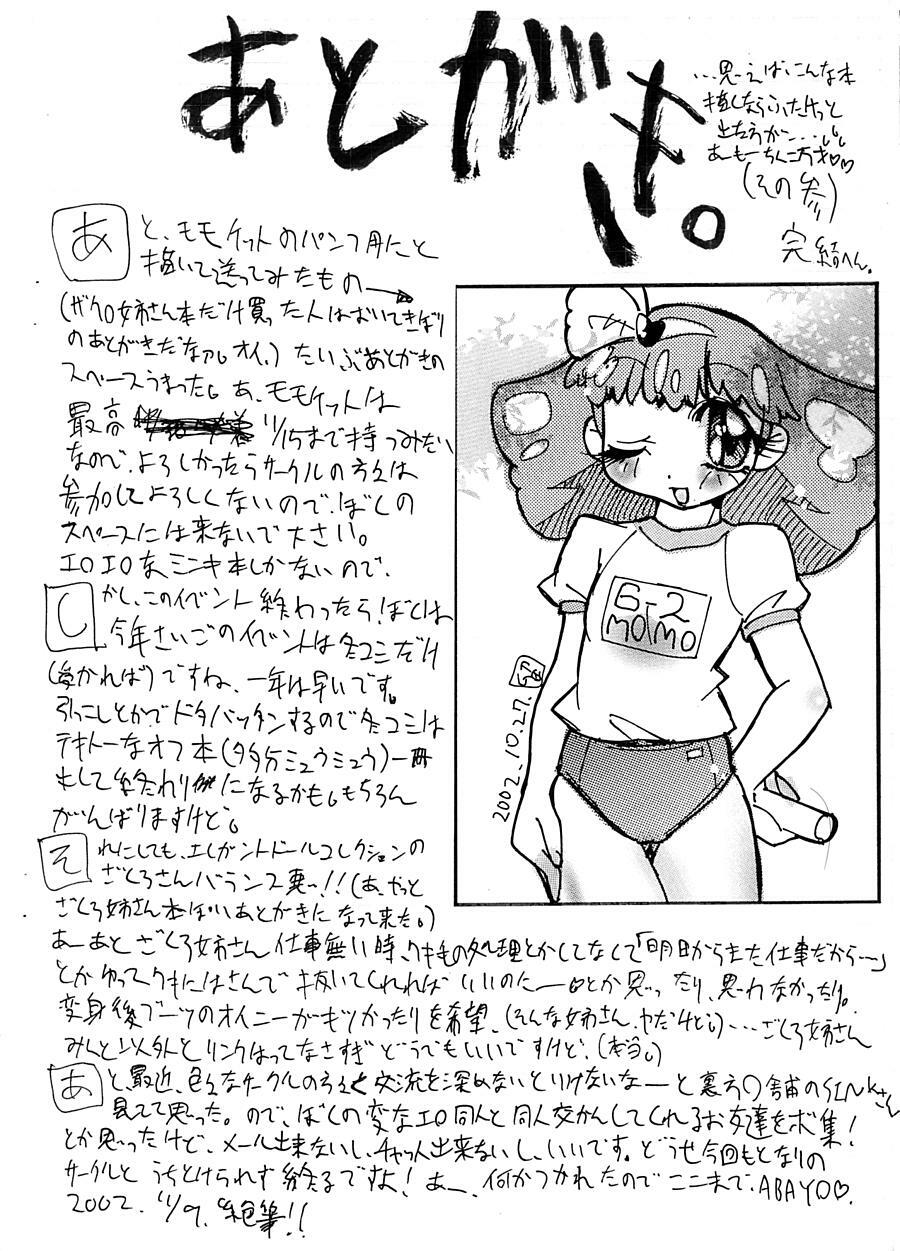 あとがき。
…思えばこんな本
描くならふたけっと
出たろうが…
あーもーちんこ万才♡♡
(その参)
完結へん。
あと、モモケットのパンフ用にと
描いて送ってみたもの→
(ザクロ姉さん本だけ買った人はおいてきぼり
のあとがきだなァ。オイ。) だいぶあとがきの
スペースうまった。あ、モモケットは
最高 11/15まで持つみたい
なので、よろしかったらサークルの方々は
参加してよろしくないので、ぼくの
スペースには来ないで下さい。
エロエロなミンキ本しかないので、
しかし、このイベント終わったら、ぼくは
今年さいごのイベントは冬コミだけ
(受かれば)ですね、一年は早いです。
引っこしとかでドタバッタンするので冬コミは
テキトーなオフ本(多分ミュウミュウ)一冊
出して終わりになるかも。もちろん
がんばりますけど。
それにしても、エレガントドールコレクションの
ざくろさんバランス悪っ!!(あ、やっと
ざくろ姉さん本ぽいあとがきになって来た。)
あーあと ざくろ姉さん 仕事無い時、ワキ毛の処理とかしてなくて「明日からまた仕事だから…」
とかゆってワキにはさんで抜いてくれればいいのにーとか思ったり、思わなかったり。
変身後ブーツのオイニーがキツかったりを希望、(そんな姉さん、ヤだけど)…ざくろ姉さん
みんと以外とリンクはってなさすぎ どうでもいいですけど、(本当。)
あと、最近、色々なサークルの方々と交流を深めないといけないなーと裏方〇舗のSINkさん
見てて思った。ので、ぼくの変なエロ同人と同人交かんしてくれるお友達をボ集!
とか思ったけど、メール出来ないし、チャット出来ないし、いいです。どうせ今回もとなりの
サークルと うちとけられず終るですよ! あー、何かつかれたのでここまで、ABAYO♡.
2002. 11/9. 絶筆!!
6-2
MOMO
2002.10.27.